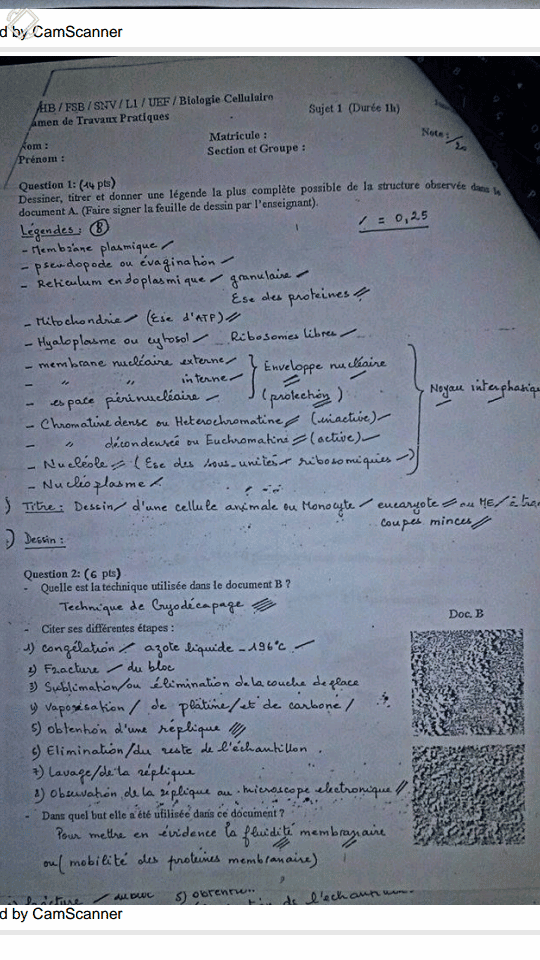 d by CamScanner
HB / FSB / SNV / L1 / UEF / Biologie Cellulaire
amen de Travaux Pratiques
Sujet 1 (Durée 1h)
Nom :
Matricule :
Note : /20
Prénom :
Section et Groupe :
Question 1: (14 pts)
Dessiner, titrer et donner une légende la plus complète possible de la structure observée dans le
document A. (Faire signer la feuille de dessin par l'enseignant).
/ = 0,25
Légendes : B
- Membrane plasmique /
- pseudopode ou évagination /
- Reticulum endoplasmique / granulaire /
Ese des proteines //
- Mitochondrie / (Ese d'ATP) //
- Hyaloplasme ou cytosol / Ribosomes libres /
- membrane nucléaire externe /
- " " interne /
Enveloppe nucléaire
- espace périnucléaire /
(protection)
Noyau interphasique
- Chromatine dense ou Heterochromatine // (inactive) /
- " décondensée ou Euchromatine // (active) /
- Nucléole // (Ese des sous-unités / ribosomiques /)
- Nucléoplasme /
) Titre : Dessin / d'une cellule animale ou Monocyte / eucaryote // au ME /
coupes minces //
) Dessin :
Question 2: (6 pts)
- Quelle est la technique utilisée dans le document B ?
Technique de Cryodécapage
Doc. B
- Citer ses différentes étapes :
1) congélation / azote liquide -196°C /
2) Fracture / du bloc
3) Sublimation / ou élimination de la couche de glace
4) Vaporisation / de platine / et de carbone /
5) Obtention d'une réplique ///
6) Elimination / du reste de l'échantillon .
7) Lavage / de la réplique
8) Observation de la réplique au microscope electronique //
- Dans quel but elle a été utilisée dans ce document ?
Pour mettre en évidence la fluidité membranaire
ou ( mobilité des proteines membranaire)
/ du bloc 5) obtention
de l'echantillon
d by CamScanner